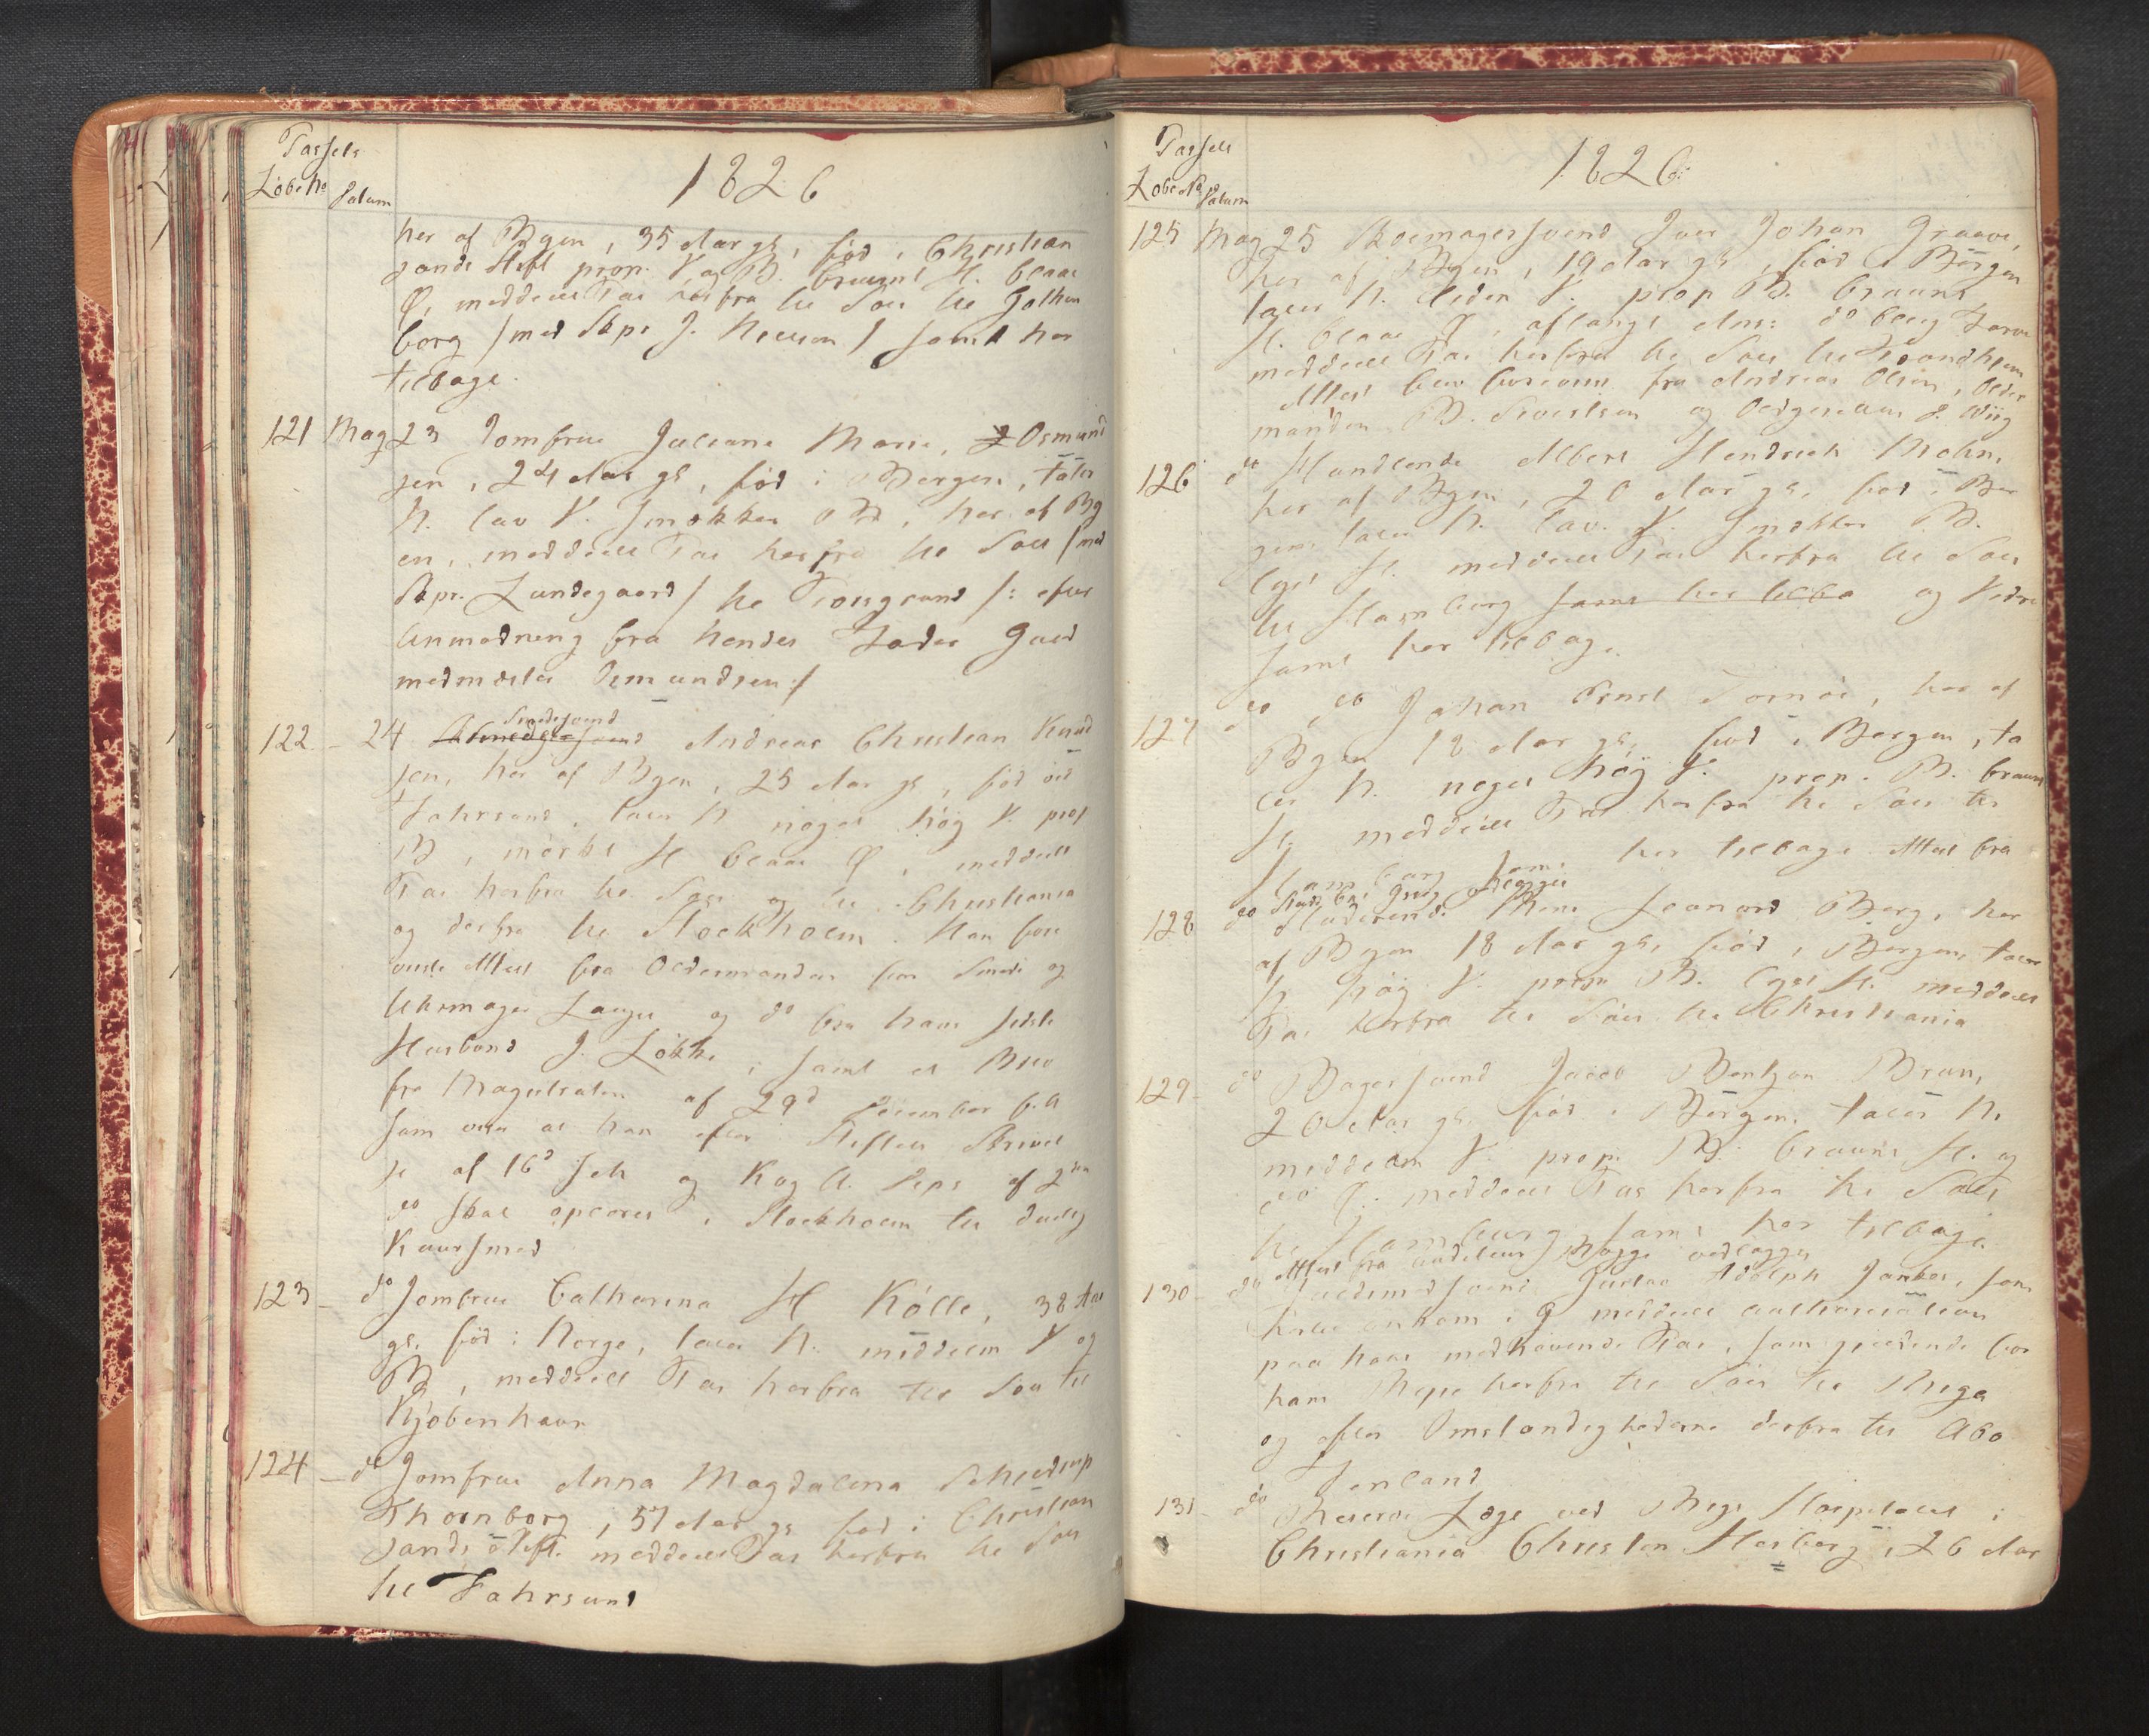 Passets
Löbe No Datum
1826
her af Bÿen, 35 Aar gl, föd i Christian
sands Stift prop. V. og B. bruunt H. blaae
Ö, meddeelt Pas herfra til Söes til Gothen
borg / med Skpr J. Nielsen / samt her
tilbage.
121 May 23 Jomfrue Juliane Marie Osmund
sen, 24 Aar gl, föd i Bergen, taler
N. lav V. smekker B, her af By
en, meddeelt Pas herfra til Söes / med
Skpr. Lundegaard / til /: efter
Anmodning fra hendes Fader Guld
smedmester Osmundsen :/
122 - 24 Smedesvend Andreas Christian Knud
sen, her af Byen, 25 Aar gl, föd ved
Fahrsund, taler N noget höy V. prop
B, mörkt H blaae Ö, meddeelt
Pas herfra til Söes og til Christiania
og derfra til Stockholm. Han fore
viiste Attest fra Oldermanden for Smede og
Uhrmager Lauget og do fra hans sidste
Huusbond J. Lökke, samt et Brev
fra Magistraten af 29d December f.A
som viser at han efter Stiftets Skrivel
se af 16d Feb og Kogl. Deps af 2den
do skal oplæres i Stockholm til duelig
Kuursmed
123 - do Jomfrue Catharina H Kölle, 38 Aar
gl, föd i Norge, taler N. middelm V og
B, meddeelt Pas herfra til Söes til
Kjöbenhavn
124 - do Jomfrue Anna Magdalena
Thornborg, 57 Aar gl föd i Christian
sands Stift meddeelt Pas herfra til Söes
til Fahrsund
Passets
Löbe No Datum
1826
125 May 25 Skoemagersvend Iver Johan Graave,
her af Byen, 19 Aar gl, föd i Bergen
taler N. liden V. prop B. bruunt
H. blaae Ö, aflangt Ans: do bleeg Farve
meddeelt Pas herfra til Söes til Trondhiem
Attest blev foreviist fra Andreas Olsen, Older
manden B. Sivertsen og J. Wiig
126 do Handlende Albert Hendrich Mohn,
her af Byen, 20 Aar gl, föd i Ber
gen taler N. lav. V. smekker B.
lyst H. meddeelt Pas herfra til Söes
til Hamburg samt her tilba og videre
samt her tilbage.
127 do do Johan Ernst Tornöe, her af
Byen 18 Aar gl, föd i Bergen, ta
ler N. noget höy V. prop. B. bruunt
H. meddeelt Pas herfra til Söes til
Hamburg samt her tilbage Attest fra
128 do Handlende Leonard Berg, her
af Byen 18 Aar gl, föd i Bergen, taler
N höy V. prop B. lyst H. meddeelt
Pas herfra til Söes til Christiania
129 - do Bagersvend Jacob Bentzon Brun,
20 Aar gl, föd i Bergen, taler N.
middelm V. prop. B. bruunt H. og
do Ö. meddeelt Pas herfra til Söes
til Hamburg samt her tilbage.
Attest fra vedlegges
130 - do Guldsmedsvend Gustav Adolph Janker, som
ankom i G meddeelt authorisation
paa hans medhavende Pas, som gieldende for
ham Reise herfra til Söes til Riga
og efter Omstændighederne derfra til Abo
i Finland
131 - do Reserve Læge ved Rigs Hospitalet i
Christiania Christen Heiberg, 26 Aar